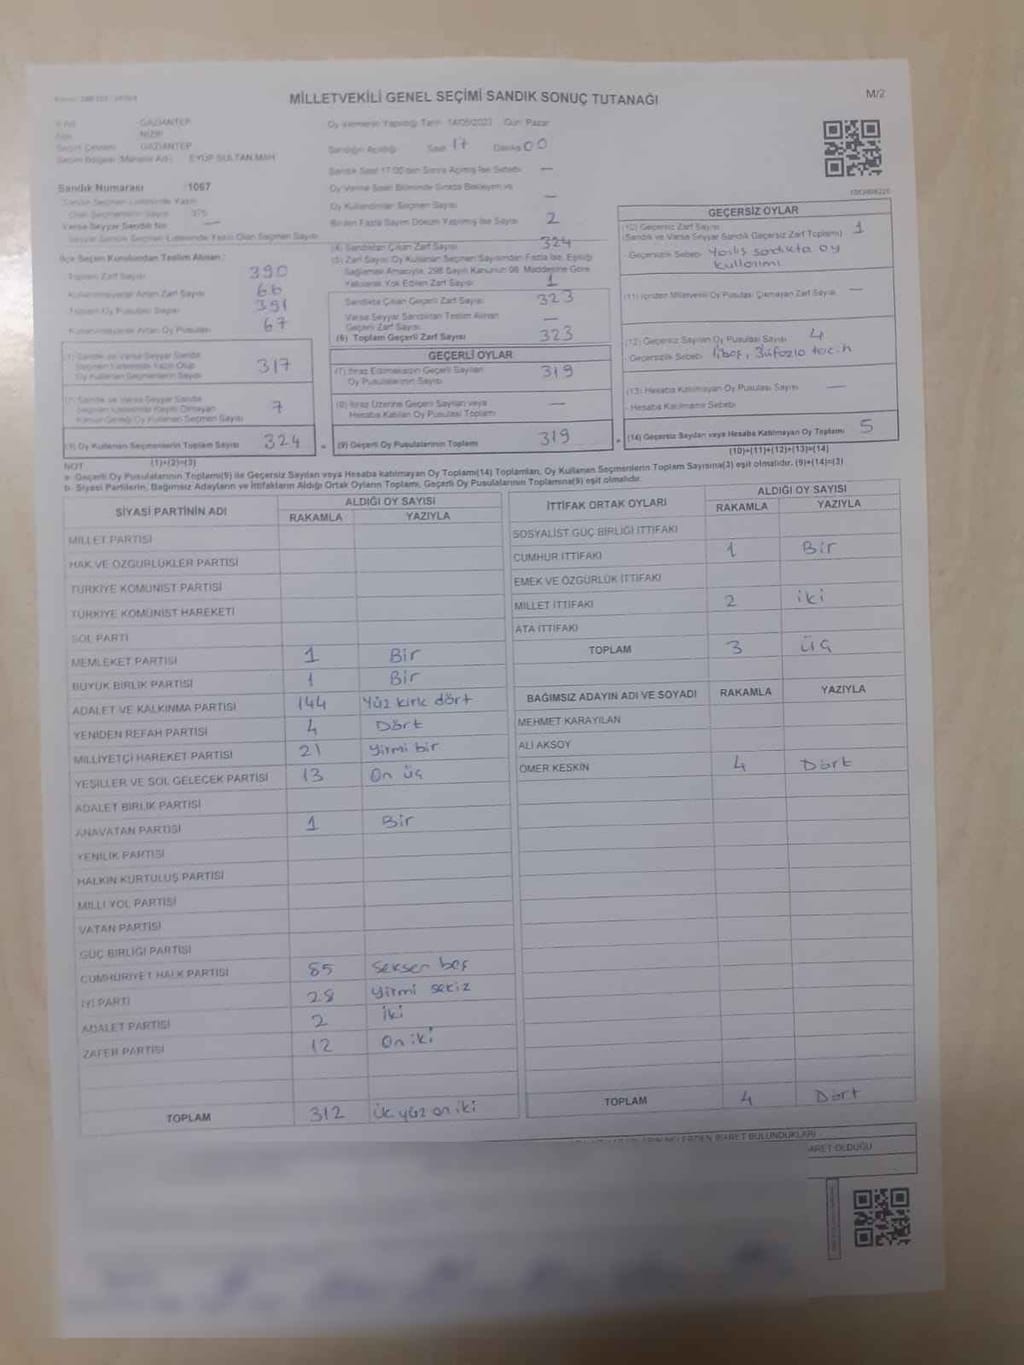 MİLLETVEKİLİ GENEL SEÇİMİ SANDIK SONUÇ TUTANAĞI
M/2
GAZİANTEP
NİZİP
GAZİANTEP
EYÜP SULTAN MAH
Sandık Numarası 1067
Oy Vermenin Yapıldığı Tarih 14/05/2023 Gün Pazar
Sandığın Açıldığı Saat 17 Dakika 00
Sandık Saat 17:00'den Sonra Açılmış İse Sebebi —
Oy Verme Saati Bitiminde Sırada Bekleyen ve
Oy Kullandırılan Seçmen Sayısı —
Birden Fazla Sayım Döküm Yapılmış İse Sayısı 2
Sandık Seçmen Listesinde Yazılı
Olan Seçmenlerin Sayısı 375
Varsa Seyyar Sandık No —
Seyyar Sandık Seçmen Listesinde Yazılı Olan Seçmen Sayısı
İlçe Seçim Kurulundan Teslim Alınan
Toplam Zarf Sayısı 390
Kullanılmayarak Artan Zarf Sayısı 66
Toplam Oy Pusulası Sayısı 391
Kullanılmayarak Artan Oy Pusulası 67
(1) Sandık ve Varsa Seyyar Sandık
Seçmen Listesinde Yazılı Olup
Oy Kullanan Seçmenlerin Sayısı 317
7
(3) Oy Kullanan Seçmenlerin Toplam Sayısı 324
(1)+(2)=(3)
(4) Sandıktan Çıkan Zarf Sayısı 324
(5) Zarf Sayısı Oy Kullanan Seçmen Sayısından Fazla İse, Eşitliği
Sağlamak Amacıyla, 298 Sayılı Kanunun 98. Maddesine Göre
Yakılarak Yok Edilen Zarf Sayısı 1
Sandıkta Çıkan Geçerli Zarf Sayısı 323
Varsa Seyyar Sandıktan Teslim Alınan
Geçerli Zarf Sayısı —
(6) Toplam Geçerli Zarf Sayısı 323
GEÇERLİ OYLAR
(7) İtiraz Edilmeksizin Geçerli Sayılan
Oy Pusulalarının Sayısı 319
(8) İtiraz Üzerine Geçerli Sayılan veya
Hesaba Katılan Oy Pusulası Toplamı —
= (9) Geçerli Oy Pusulalarının Toplamı 319
GEÇERSİZ OYLAR
(10) Geçersiz Zarf Sayısı 1
(Sandık ve Varsa Seyyar Sandık Geçersiz Zarf Toplamı)
- Geçersizlik Sebebi Yanlış sandıkta oy
kullanımı
(11) İçinden Milletvekili Oy Pusulası Çıkmayan Zarf Sayısı —
(12) Geçersiz Sayılan Oy Pusulası Sayısı 4
- Geçersizlik Sebebi 1 boş, 3 ü fazla tercih
(13) Hesaba Katılmayan Oy Pusulası Sayısı —
- Hesaba Katılmama Sebebi
+ (14) Geçersiz Sayılan veya Hesaba Katılmayan Oy Toplamı 5
(10)+(11)+(12)+(13)=(14)
NOT
a- Geçerli Oy Pusulalarının Toplamı(9) ile Geçersiz Sayılan veya Hesaba katılmayan Oy Toplamı(14) Toplamları, Oy Kullanan Seçmenlerin Toplam Sayısına(3) eşit olmalıdır. (9)+(14)=(3)
b- Siyasi Partilerin, Bağımsız Adayların ve İttifakların Aldığı Ortak Oyların Toplamı, Geçerli Oy Pusulalarının Toplamına(9) eşit olmalıdır.
SİYASİ PARTİNİN ADI ALDIĞI OY SAYISI
RAKAMLA YAZIYLA
MİLLET PARTİSİ
HAK VE ÖZGÜRLÜKLER PARTİSİ
TÜRKİYE KOMÜNİST PARTİSİ
TÜRKİYE KOMÜNİST HAREKETİ
SOL PARTİ
MEMLEKET PARTİSİ 1 Bir
BÜYÜK BİRLİK PARTİSİ 1 Bir
ADALET VE KALKINMA PARTİSİ 144 Yüz kırk dört
YENİDEN REFAH PARTİSİ 4 Dört
MİLLİYETÇİ HAREKET PARTİSİ 21 Yirmi bir
YEŞİLLER VE SOL GELECEK PARTİSİ 13 On üç
ADALET BİRLİK PARTİSİ
ANAVATAN PARTİSİ 1 Bir
YENİLİK PARTİSİ
HALKIN KURTULUŞ PARTİSİ
MİLLİ YOL PARTİSİ
VATAN PARTİSİ
GÜÇ BİRLİĞİ PARTİSİ
CUMHURİYET HALK PARTİSİ 85 Seksen beş
İYİ PARTİ 28 Yirmi sekiz
ADALET PARTİSİ 2 İki
ZAFER PARTİSİ 12 On iki
TOPLAM 312 Üç yüz on iki
İTTİFAK ORTAK OYLARI ALDIĞI OY SAYISI
RAKAMLA YAZIYLA
SOSYALİST GÜÇ BİRLİĞİ İTTİFAKI
CUMHUR İTTİFAKI 1 Bir
EMEK VE ÖZGÜRLÜK İTTİFAKI
MİLLET İTTİFAKI 2 iki
ATA İTTİFAKI
TOPLAM 3 üç
BAĞIMSIZ ADAYIN ADI VE SOYADI RAKAMLA YAZIYLA
MEHMET KARAYILAN
ALİ AKSOY
ÖMER KESKİN 4 Dört
TOPLAM 4 Dört